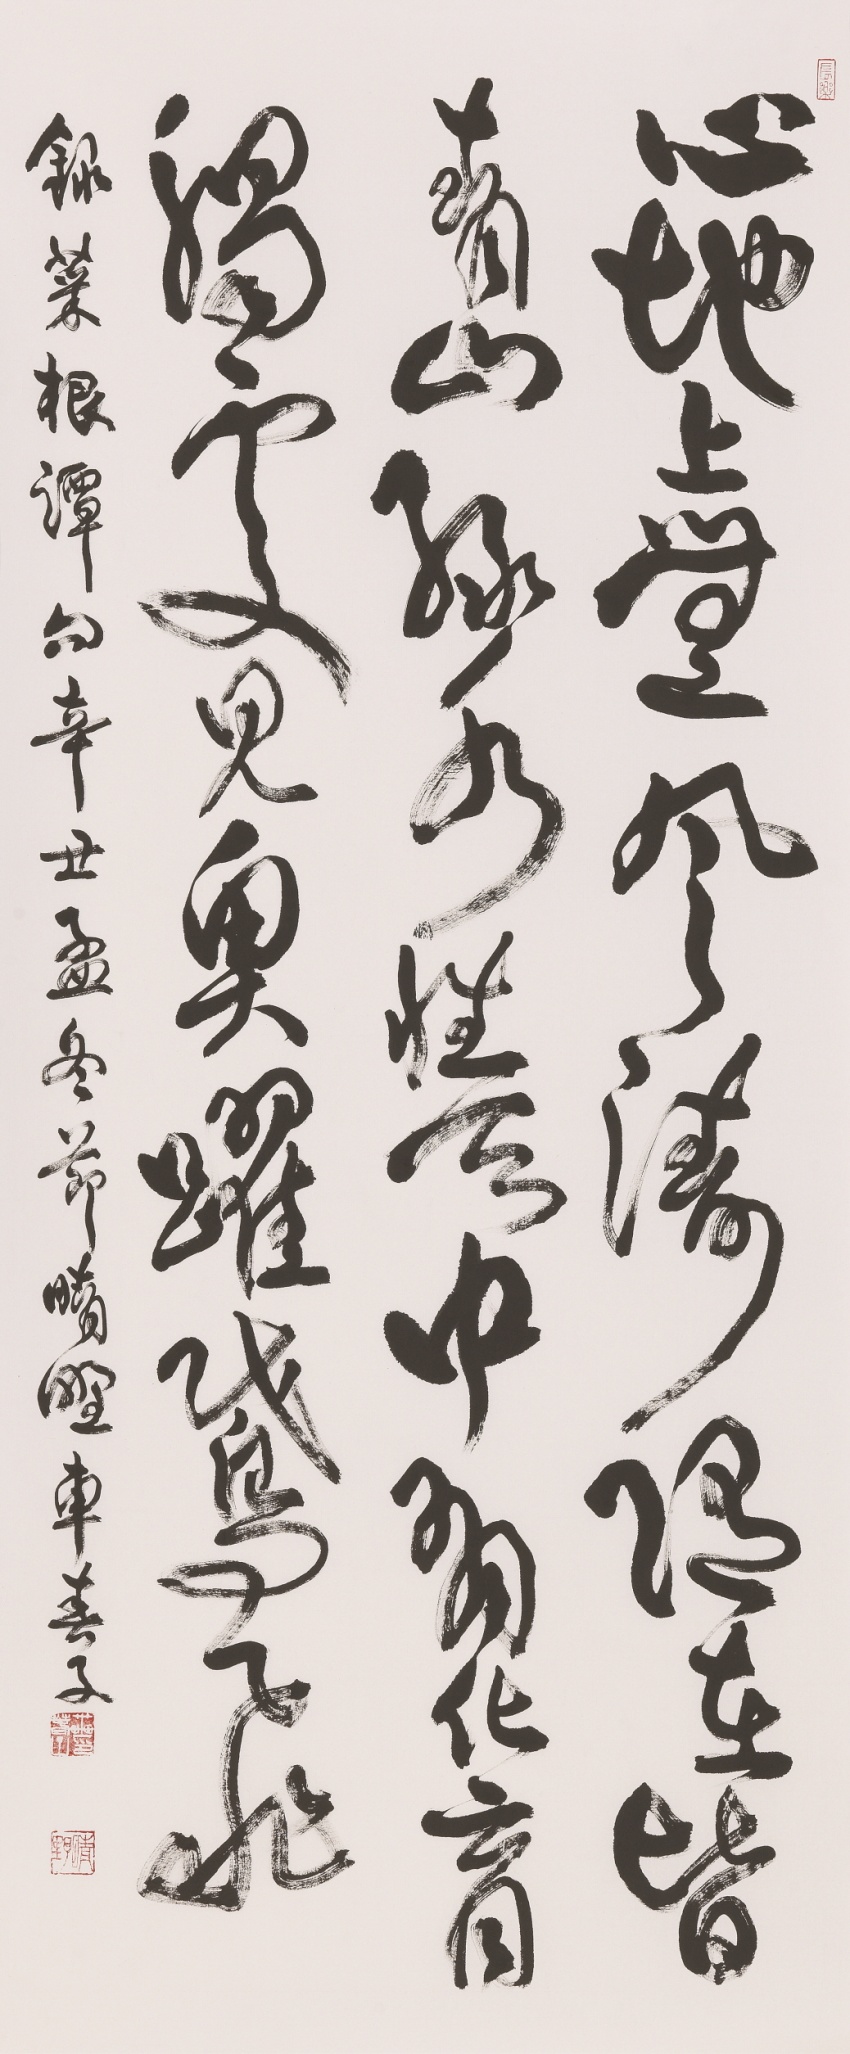 心地上無風濤隨在皆
青山綠水性天中有化育
觸處見魚躍鳶飛
錄菜根譚句辛丑孟冬節晴野車春子